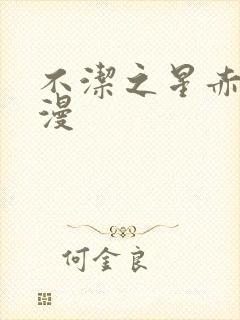 不潔之星赤
漫
何金良